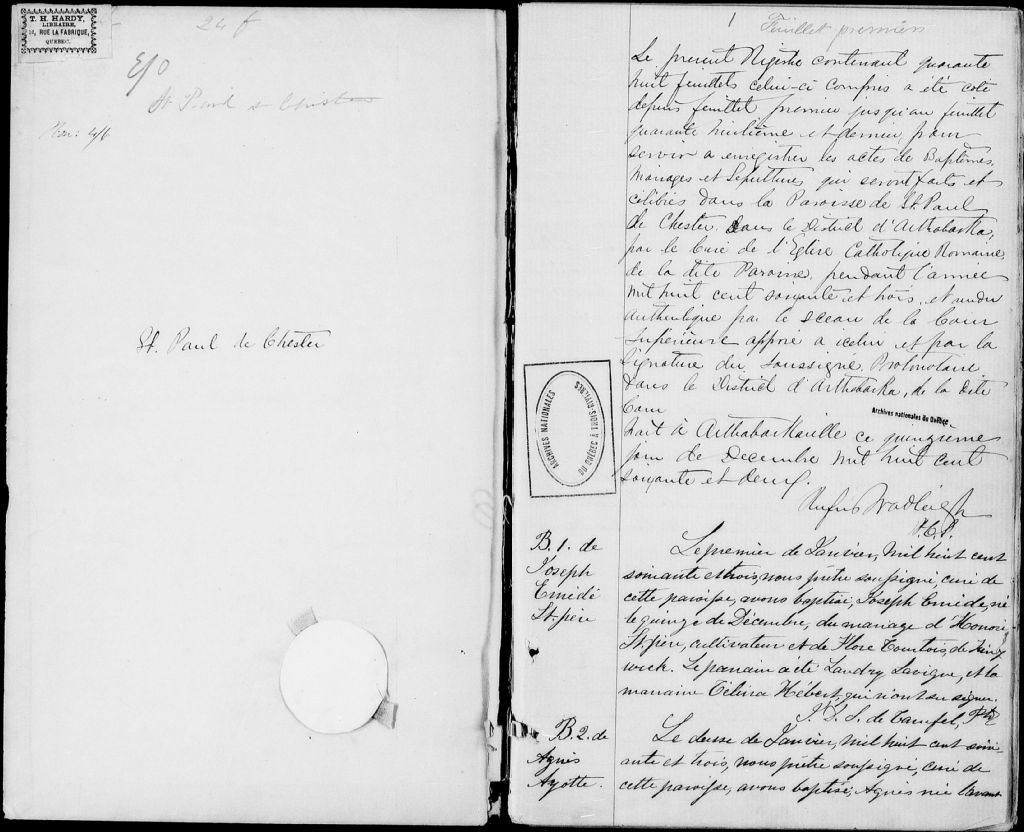 T. H. HARDY,
LIBRAIRE,
RUE LA FABRIQUE,
QUEBEC.
24 f
St. Paul de Chester
1
Feuillet premier
Le present Régistre contenant quarante
huit feuillets celui-ci compris a été coté
depuis feuillet premier jusqu'au feuillet
quarante huitième et dernier, pour
servir a enrégistrer les actes de Baptêmes,
Mariages et Sépultures qui seront faits et
célébrés dans la Paroisse de St. Paul
de Chester, dans le District d'Arthabaska,
par le Curé de l'Eglise Catholique Romaine
de la dite Paroisse, pendant l'année
mil huit cent soixante et trois, et rendu
authentique par le sceau de la Cour
Supérieure apposé a icelui et par la
signature du soussigné Protonotaire
dans le District d'Arthabaska, de la dite
Cour
Fait à Arthabaskaville ce quinzieme
jour de Decembre mil huit cent
soixante et deux.
Archives nationales du Québec
ARCHIVES NATIONALES
DU QUÉBEC À TROIS-RIVIÈRES
Rufus Wadleigh
P.C.S.
B. 1. de
Joseph
Emédé
St. père
Le premier de Janvier, mil huit cent
soixante et trois, nous prêtre soussigné, curé de
cette paroisse, avons baptisé, Joseph Emédé, né
le quinze de Décembre, du mariage d'Honoré
St. père, cultivateur et de Flore Tourtois, de
wick. Le parrain a été Landry Lavigne, et la
marraine Télina Hébert, qui n'ont su signer.
Ptre
B. 2. de
Agnès
Ayotte.
Le deux de Janvier, mil huit cent soix-
ante et trois, nous prêtre soussigné, curé de
cette paroisse, avons baptisé, Agnès née l'avant